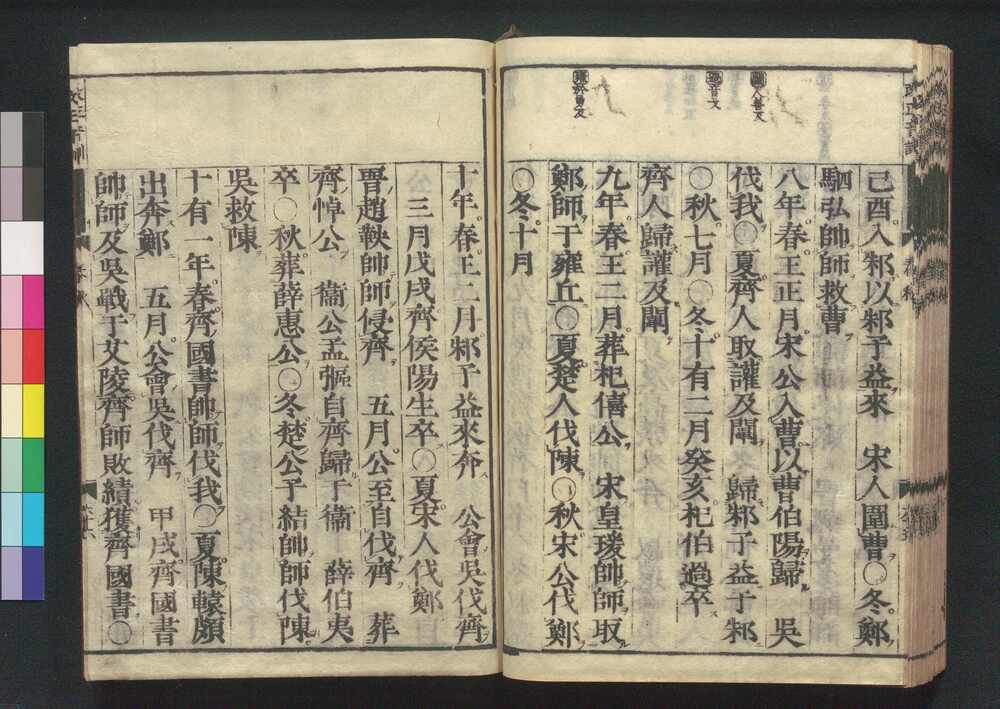 讙 火喜又
鞄 音又
己酉入邾以邾子益來 宋人圍曹〇冬鄭
駟弘帥師救曹
八年春王正月宋公入曹以曹伯陽歸 吳
伐我〇夏齊人取讙及闡 歸邾子益于邾
〇秋七月〇冬十有二月癸亥杞伯過卒
齊人歸讙及闡
九年春王二月葬杞僖公 宋皇瑗帥師取
鄭師于雍丘〇夏楚人伐陳〇秋宋公伐鄭
〇冬十月
十年春王二月邾子益來奔 公會吳伐齊
公三月戊戌齊侯陽生卒〇夏宋人伐鄭
晉趙鞅帥師侵齊 五月公至自伐齊 葬
齊悼公 衞公孟彄自齊歸于衞 薛伯夷
卒〇秋葬薛惠公〇冬楚公子結帥師伐陳
吳救陳
十有一年春齊國書帥師伐我〇夏陳轅頗
出奔鄭 五月公會吳伐齊 甲戌齊國書
帥師及吳戰于艾陵齊師敗績獲齊國書〇